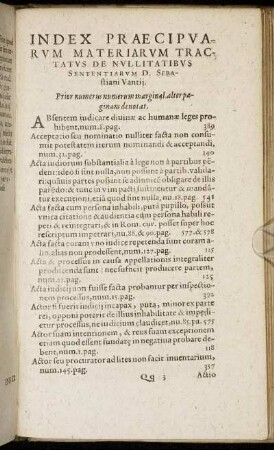 INDEX PRAECIPVA-
RVM MATERIARVM TRAC-
TATVS DE NVLLITATIBVS
SENTENTIARVM D. SEBA-
stiani Vantij.
Prior numerus numerum marginal. alter pa-
ginam denotat.
ABsentem iudicare diuinæ ac humanæ leges pro-
hibent, num.8. pag. 389
Acceptatio seu nominatio nulliter facta non consu-
mit potestatem iterum nominandi & acceptandi,
num.32. pag. 340
Acta iudiciorum substantialia à lege non à partibus pē-
dent: ideo si sint nulla, non possunt à partib. valida-
ri: quāuis partes possint se adinuicē obligare de illis
tenēdis, & tunc iudex in vim
executioni, etiā quod sint nulla, nu.18. 542
Acta facta cum persona inhabili, putà pupillo, possunt
vnica citatione & audientia cum persona habili repe-
ti, & reintegrari, & in Rom. cur. posset super hoc
rescriptum impetrari, nu.88, & 90. pag. 577. & 578
Acta facta coram vno iudice repetenda sunt coram a-
lio, aliàs non prodessent, num.127. pag. 125
Acta & processus in causa appellationis integraliter
producenda sunt: nec sufficit producere partem,
num. pag. 125
Acta iudicij non fuisse facta probantur per inspectio-
nem processus, num.15. pag. 392
Actor si fuerit iudicij incapax, puta, minor ex parte
rei, opponi poterit de illius inhabilitate & impedi-
tur processus, ne iudicium claudicet, nu.85. pa. 575
Actor suam intentionem, & reus suam exceptionem
etiam quod essent fundatę in negatiua probare de-
bent, num.1. pag. 118
Actor seu procurator ad lites non facit inuentarium,
num.145. pag. 317
Qq 3 Actio